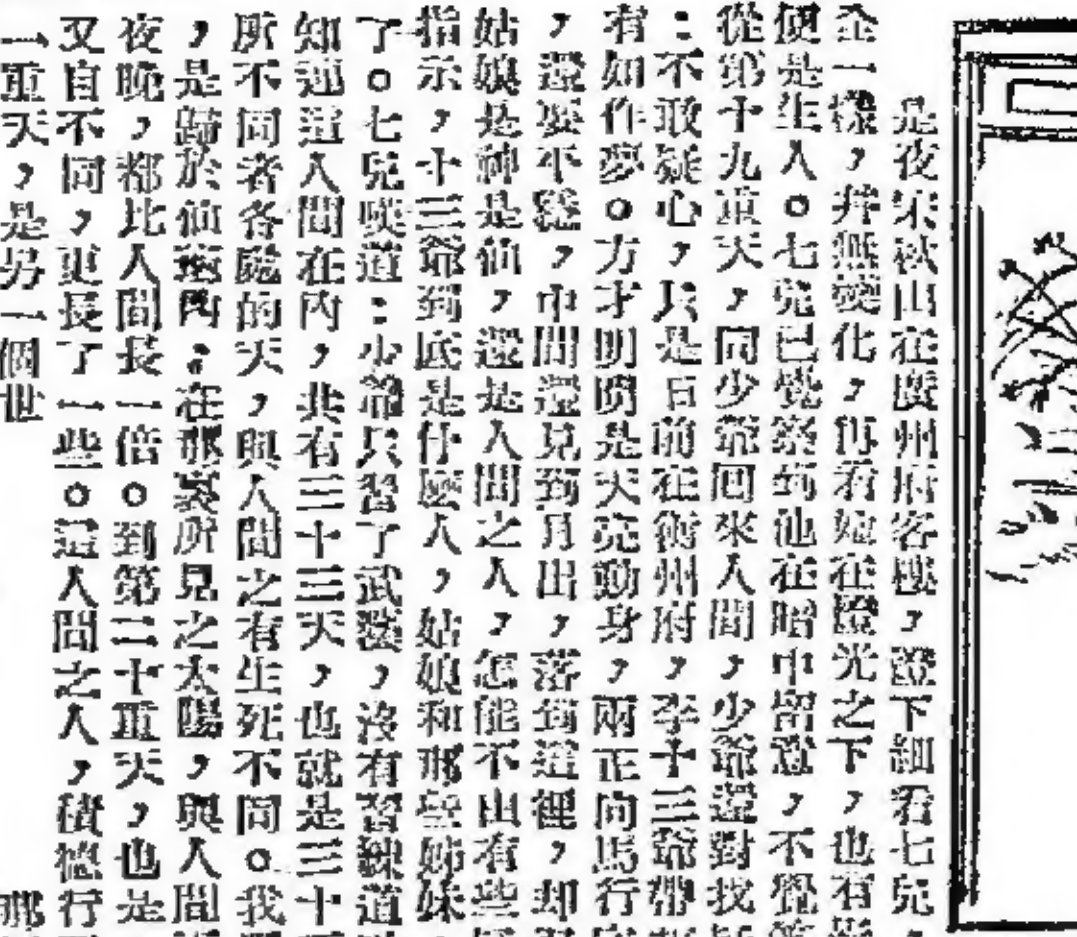 是夜宋秋山在廣州府客棧,證下細看七兒
全一樣,并無變化,再看她在證光之下,也有
便是生人。七兒已覺察到他在暗中留意,不覺
從第十九重天,同少爺回來人間,少爺還對我
:不敢疑心,只是日前在衡州府,李十三爺帶
有如作夢。方才明明是天亮動身,兩正向馬行
,還要不遲,中間還見到月出,落到這裡,却
姑娘是神是仙,還是人間之人,怎能不由有些
指示,十三爺到底是什麼人,姑娘和那些姊妹
了。七兒嘆道:少爺只習了武藝,沒有習練道
知連這人間在內,共有三十三天,也就是三十
所不同者各處的天,與人間之有生死不同。我
,是歸於仙籍內。在那裏所見之太陽,與人間
夜晚,都比人間長一倍。到第二十重天,也是
又自不同,更長了一些。這人間之人,積德行
一重天,是另一個世 那